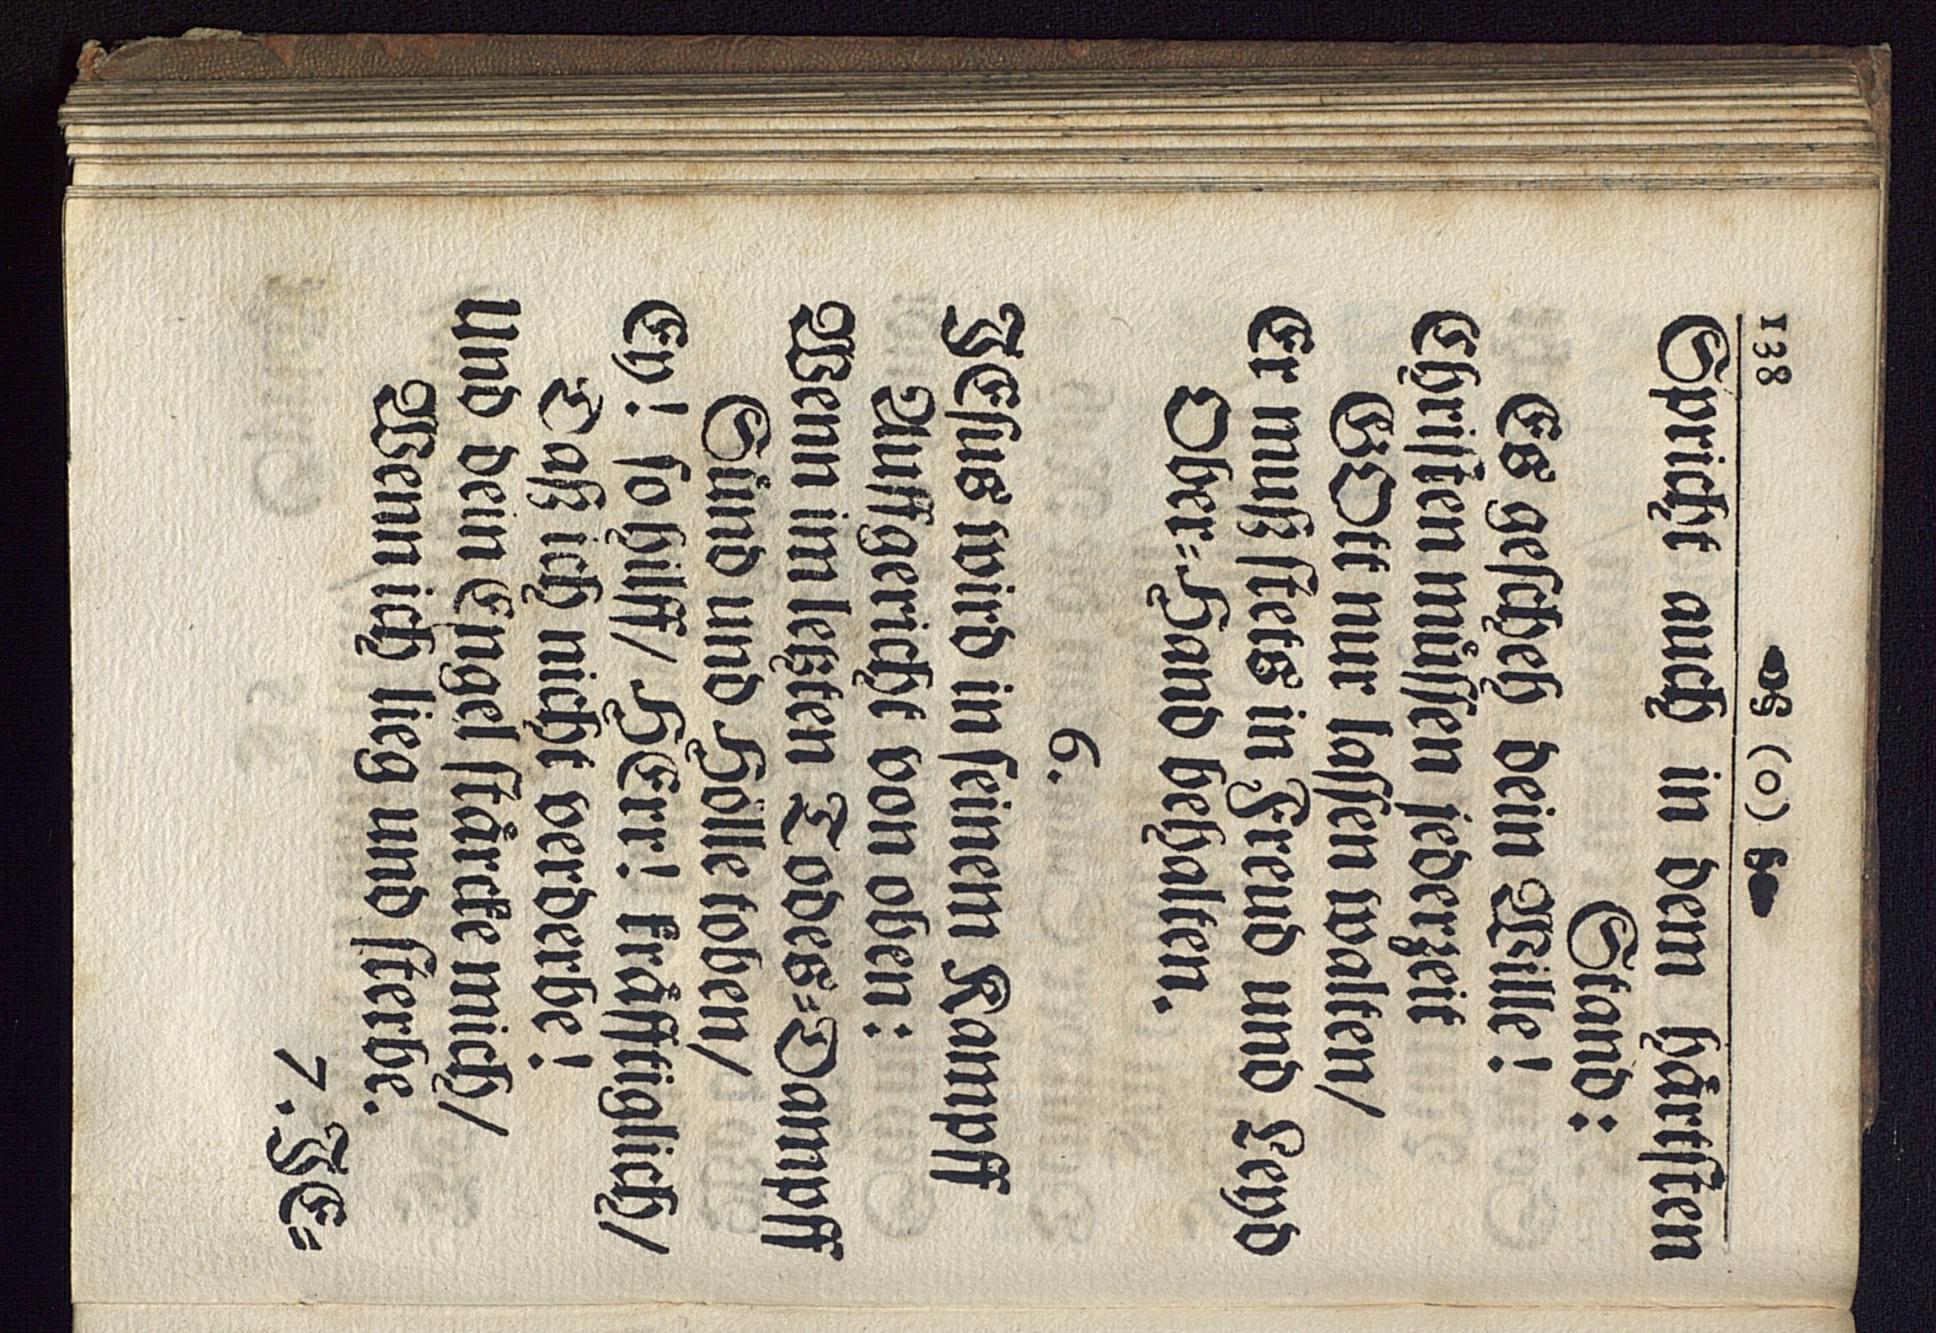 138 ❧ (o) ❧
Spricht auch in dem hårtſten
Stand:
Es geſcheh dein Wille!
Chriſten můſſen jederzeit
GOtt nur laſſen walten/
Er muß ſtets in Freud und Leyd
Ober-Hand behalten.
6.
JEſus wird in ſeinem Kampff
Auffgericht von oben:
Wenn im letzten Todes-Dampff
Sůnd und Hölle toben/
Ey! ſo hilff/ HErr! kråfftiglich/
Daß ich nicht verderbe!
Und dein Engel ſtårcke mich/
Wenn ich lieg und ſterbe.
7. JE-